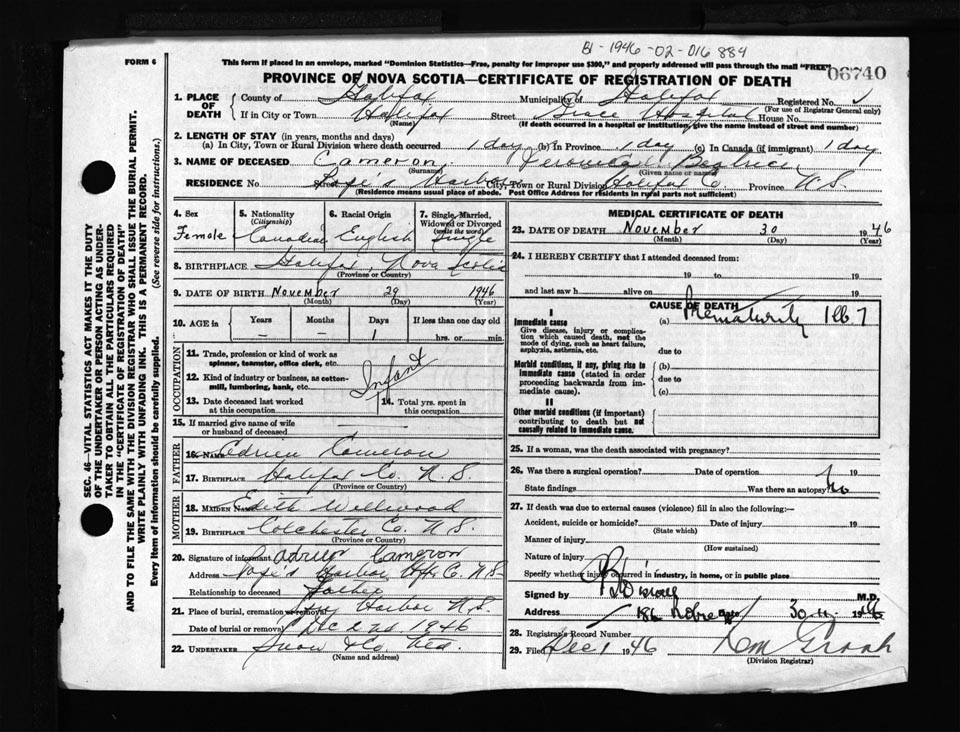 B1-1946-02-016884
FORM 6
This form if placed in an envelope, marked "Dominion Statistics—Free, penalty for improper use $300," and properly addressed will pass through the mail "FREE"
06740
PROVINCE OF NOVA SCOTIA—CERTIFICATE OF REGISTRATION OF DEATH
1. PLACE OF DEATH
County of Halifax Municipality of Halifax Registered No.
(For use of Registrar General only)
If in City or Town Halifax Street Grace Hospital House No.
(Name) (If death occurred in a hospital or institution, give the name instead of street and number)
2. LENGTH OF STAY (in years, months and days)
(a) In City, Town or Rural Division where death occurred 1 day (b) In Province 1 day (c) In Canada (if immigrant) 1 day
3. NAME OF DECEASED Cameron Veronica Beatrice
(Surname) (Given name or names)
RESIDENCE No. Street Harbor City, Town or Rural Division Halifax Co Province N.S.
(Residence means usual place of abode. Post Office Address for residents in rural part not sufficient)
4. Sex
Female
5. Nationality
(Citizenship)
Canadian
6. Racial Origin
English
7. Single, Married, Widowed or Divorced
(write the word)
Single
8. BIRTHPLACE Halifax, Nova Scotia
(Province or Country)
9. DATE OF BIRTH November 29 1946
(Month) (Day) (Year)
10. AGE in
Years Months Days If less than one day old
— — 1 hrs. or min.
OCCUPATION
11. Trade, profession or kind of work as spinner, teamster, office clerk, etc.
Infant
12. Kind of industry or business, as cotton-mill, lumbering, bank, etc.
13. Date deceased last worked at this occupation
14. Total yrs. spent in this occupation
15. If married give name of wife or husband of deceased
FATHER
16. NAME Adrien Cameron
17. BIRTHPLACE Halifax Co. N.S.
(Province or Country)
MOTHER
18. MAIDEN NAME Edith Wellwood
19. BIRTHPLACE Colchester Co. N.S.
(Province or Country)
20. Signature of informant Adrien Cameron
Address Harbor Hfx Co. N.S.
Relationship to deceased Father
21. Place of burial, cremation or removal Harbor N.S.
Date of burial or removal Dec 2nd. 1946
22. UNDERTAKER Snow & Co. Ltd.
(Name and address)
MEDICAL CERTIFICATE OF DEATH
23. DATE OF DEATH November 30 1946
(Month) (Day) (Year)
24. I HEREBY CERTIFY that I attended deceased from:
19 to 19
and last saw h alive on 19
CAUSE OF DEATH
I
Immediate cause
Give disease, injury or complication which caused death, not the mode of dying, such as heart failure, asphyxia, asthenia, etc.
(a) Prematurity 1 lb. 7
due to
Morbid conditions, if any, giving rise to immediate cause (stated in order proceeding backwards from immediate cause).
(b)
due to
(c)
II
Other morbid conditions (if important) contributing to death but not causally related to immediate cause.
25. If a woman, was the death associated with pregnancy?
26. Was there a surgical operation? Date of operation 19
State findings Was there an autopsy? no
27. If death was due to external causes (violence) fill in also the following:—
Accident, suicide or homicide? Date of injury 19
(State which)
Manner of injury
(How sustained)
Nature of injury
Specify whether injury occurred in industry, in home, or in public place
Signed by M.D.
Address Date 30 11 1946
28. Registrar's Record Number
29. Filed Dec 1 1946
(Division Registrar)
SEC. 46—VITAL STATISTICS ACT MAKES IT THE DUTY OF THE UNDERTAKER OR PERSON ACTING AS UNDERTAKER TO OBTAIN ALL THE PARTICULARS REQUIRED IN THE "CERTIFICATE OF REGISTRATION OF DEATH" AND TO FILE THE SAME WITH THE DIVISION REGISTRAR WHO SHALL ISSUE THE BURIAL PERMIT.
WRITE PLAINLY WITH UNFADING INK. THIS IS A PERMANENT RECORD.
Every item of information should be carefully supplied. (See reverse side for instructions.)